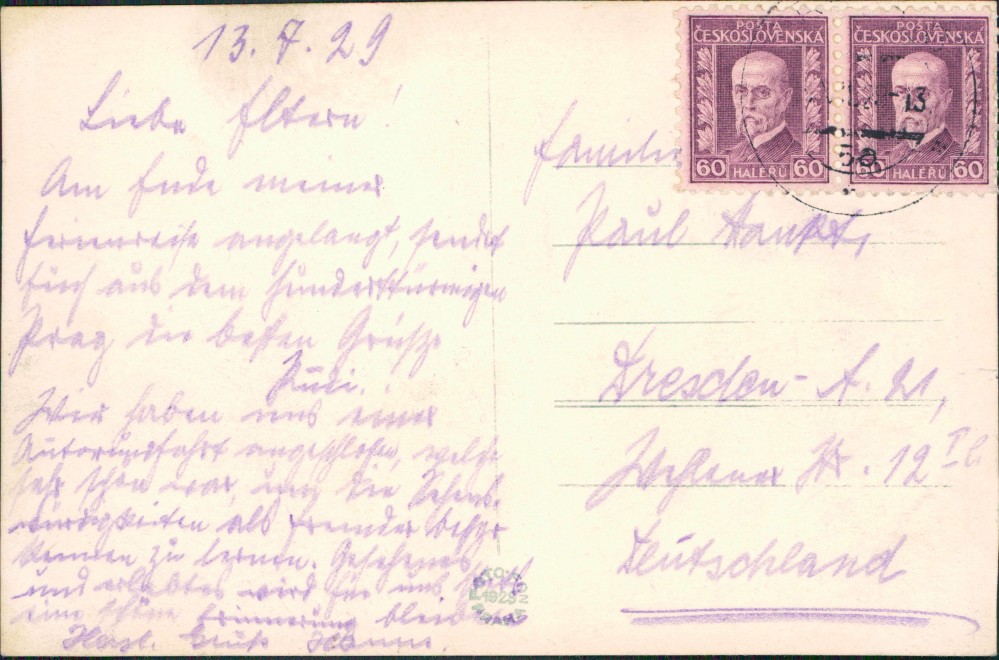 13.7.29
Liebe Eltern!
Am Ende meiner
Ferienreise angelangt, sendet
Euch aus dem hunderttürmigen
Prag die besten Grüße
Rudi.
Wir haben uns einer
Autorundfahrt angeschlossen, welche
sehr schön war, um die Sehens-
würdigkeiten als Fremder besser
kennen zu lernen. Gesehenes
und erlebtes wird für uns stets
eine schöne Erinnerung bleiben
Herzl. Gruß Hanna.
POŠTA
ČESKOSLOVENSKÁ
60 HALÉŘŮ 60
POŠTA
ČESKOSLOVENSKÁ
60 HALÉŘŮ 60
13
Familie
Paul
Dresden-A. 21,
Str. 12 I
Deutschland
1929